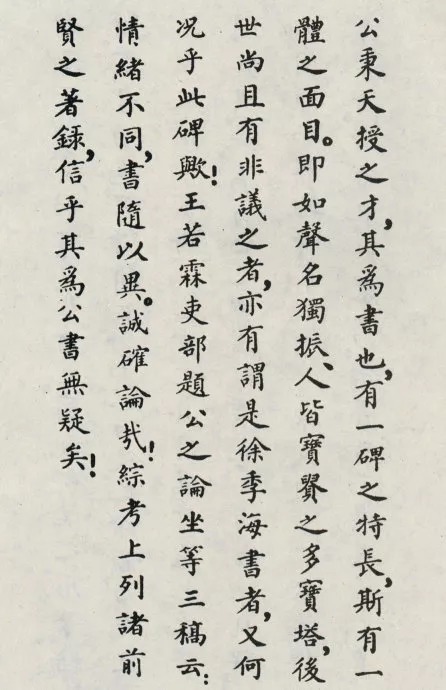 公秉天授之才，其爲書也，有一碑之特長，斯有一
體之面目。即如聲名獨振、人皆寶翫之多寶塔，後
世尚且有非議之者，亦有謂是徐季海書者，又何
況乎此碑歟！王若霖吏部題公之論坐等三稿云：
情緒不同，書隨以異。誠確論哉！綜考上列諸前
賢之著録，信乎其爲公書無疑矣！